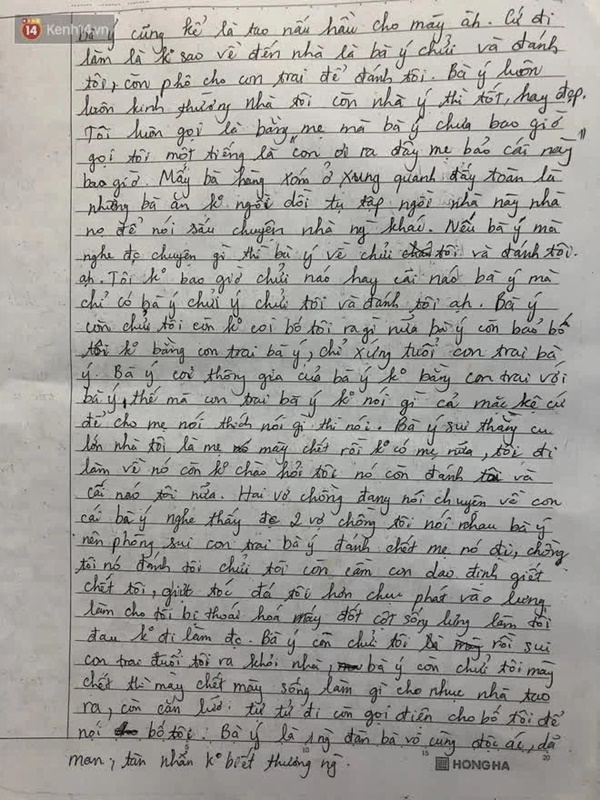 14 Kenh14.vn
bà ý cũng kể là tao nấu hầu cho mày ăh. Cứ đi
làm là k° sao về đến nhà là bà ý chửi và đánh
tôi, còn phô cho con trai để đánh tôi. Bà ý luôn
luôn kinh thường nhà tôi còn nhà ý thì tốt, hay đẹp.
Tôi luôn gọi là bằng mẹ mà bà ý chưa bao giờ
gọi tôi một tiếng là "con ơi ra đây mẹ bảo cái này"
bao giờ. Mấy bà hàng xóm ở xung quanh đấy toàn là
những bà ăn k° ngồi dồi tụ tập ngồi nhà này nhà
nọ để nói sấu chuyện nhà ng khác. Nếu bà ý mà
nghe đc chuyện gì thì bà ý về chửi tôi và đánh tôi.
ạh. Tôi k° bao giờ chửi náo hay cãi náo bà ý mà
chỉ có bà ý chửi ý chửi tôi và đánh tôi ạh. Bà ý
còn chửi tôi còn k° coi bố tôi ra gì nữa bà ý còn bảo bố
tôi k° bằng con trai bà ý, chỉ xứng tuổi con trai bà
ý. Bà ý coi thông gia của bà ý k° bằng con trai với
bà ý, thế mà con trai bà ý k° nói gì cả mặc kệ cứ
để cho mẹ nói thích nói gì thì nói. Bà ý sui thằng cu
lớn nhà tôi là mẹ mày chết rồi k° có mẹ nữa, tôi đi
làm về nó còn k° chào hỏi tôi nó còn đánh tôi và
cãi náo tôi nữa. Hai vợ chồng đang nói chuyện về con
cái bà ý nghe thấy để 2 vợ chồng tôi nói nhau bà ý
nên phòng sui con trai bà ý đánh chết mẹ nó đi, chồng
tôi nó đánh tôi chửi tôi còn cầm con dao định giết
chết tôi, giựt tóc đá tôi hơn chục phát vào lưng,
làm cho tôi bị thoái hoá mấy đốt cột sống lưng làm tôi
đau k° đi làm đc. Bà ý còn chửi tôi rồi sui
con trai đuổi tôi ra khỏi nhà, bà ý còn chửi tôi mày
chết thì mày chết mày sống làm gì cho nhục nhà tao
ra, còn cắn lưỡi tử tử đi còn gọi điện cho bố tôi để
nọi bố tôi. Bà ý là 1 ng đàn bà vô cùng độc ác, dã
man, tàn nhẫn k° biết thương ng.
10 15 20
HONG HA